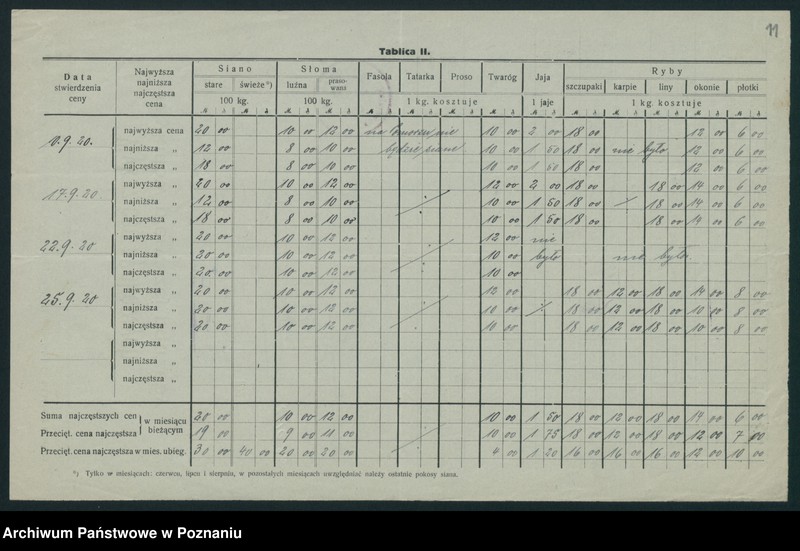 11
Tablica II.
Data stwierdzenia ceny | Najwyższa najniższa najczęstsza cena | Siano | Słoma | Fasola | Tatarka | Proso | Twaróg | Jaja | Ryby
stare | świeże*) | luźna | prasowana | szczupaki | karpie | liny | okonie | płotki
100 kg. | 100 kg. | 1 kg. kosztuje | 1 jaje | 1 kg. kosztuje
10.9.20. | najwyższa cena | 20 00 | 10 00 | 12 00 | 10 00 | 2 00 | 18 00 | 12 00 | 6 00
najniższa „ | 12 00 | 8 00 | 10 00 | będzie | 10 00 | 1 50 | 18 00 | nie było | 12 00 | 6 00
najczęstsza „ | 18 00 | 8 00 | 10 00 | 10 00 | 1 50 | 18 00 | 12 00 | 6 00
17.9.20 | najwyższa „ | 20 00 | 10 00 | 12 00 | 12 00 | 2 00 | 18 00 | 18 00 | 14 00 | 6 00
najniższa „ | 12 00 | 8 00 | 10 00 | 10 00 | 1 50 | 18 00 | 18 00 | 14 00 | 6 00
najczęstsza „ | 18 00 | 8 00 | 10 00 | 10 00 | 1 50 | 18 00 | 18 00 | 14 00 | 6 00
22.9.20 | najwyższa „ | 20 00 | 10 00 | 12 00 | 12 00 | nie
najniższa „ | 20 00 | 10 00 | 12 00 | 10 00 | było | nie było
najczęstsza „ | 20 00 | 10 00 | 12 00 | 10 00
25.9.20 | najwyższa „ | 20 00 | 10 00 | 12 00 | 12 00 | 18 00 | 12 00 | 18 00 | 14 00 | 8 00
najniższa „ | 20 00 | 10 00 | 12 00 | 10 00 | 18 00 | 12 00 | 18 00 | 10 00 | 8 00
najczęstsza „ | 20 00 | 10 00 | 12 00 | 10 00 | 18 00 | 12 00 | 18 00 | 10 00 | 8 00
najwyższa „
najniższa „
najczęstsza „
Suma najczęstszych cen w miesiącu bieżącym | 20 00 | 10 00 | 12 00 | 10 00 | 1 50 | 18 00 | 12 00 | 18 00 | 14 00 | 6 00
Przecięt. cena najczęstsza | 19 00 | 9 00 | 11 00 | 10 00 | 1 75 | 18 00 | 12 00 | 18 00 | 12 00 | 7 00
Przecięt. cena najczęstsza w mies. ubieg. | 30 00 | 40 00 | 20 00 | 30 00 | 4 00 | 1 20 | 16 00 | 16 00 | 16 00 | 12 00 | 10 00
*) Tylko w miesiącach: czerwcu, lipcu i sierpniu, w pozostałych miesiącach uwzględniać należy ostatnie pokosy siana.
Archiwum Państwowe w Poznaniu